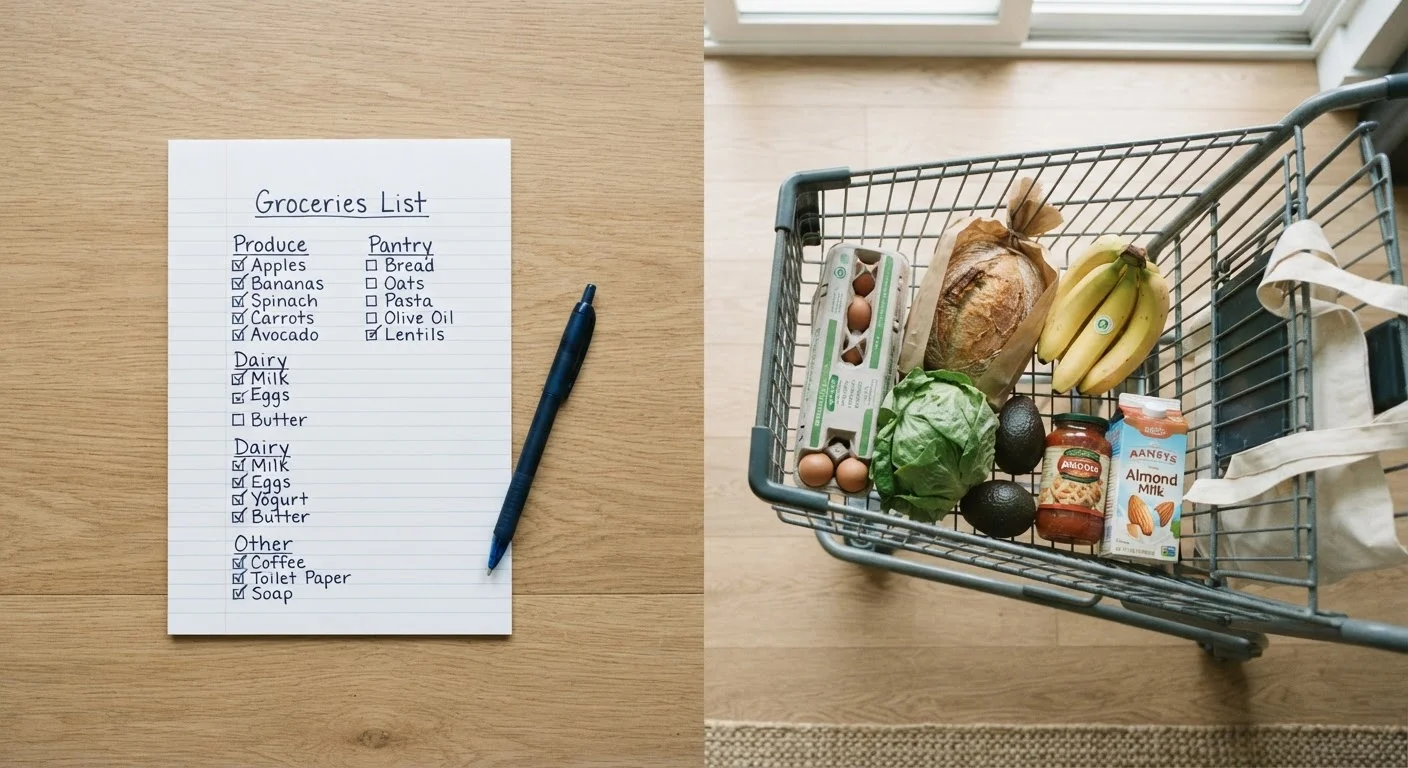 Groceries List
Produce
☑ Apples
☑ Bananas
☑ Spinach
☑ Carrots
☑ Avocado
Dairy
☑ Milk
☑ Eggs
☐ Butter
Dairy
☑ Milk
☑ Eggs
☑ Yogurt
☑ Butter
Other
☑ Coffee
☑ Toilet Paper
☑ Soap
Pantry
☐ Bread
☐ Oats
☐ Pasta
☐ Olive Oil
☑ Lentils
AANGYS
Almond
Milk